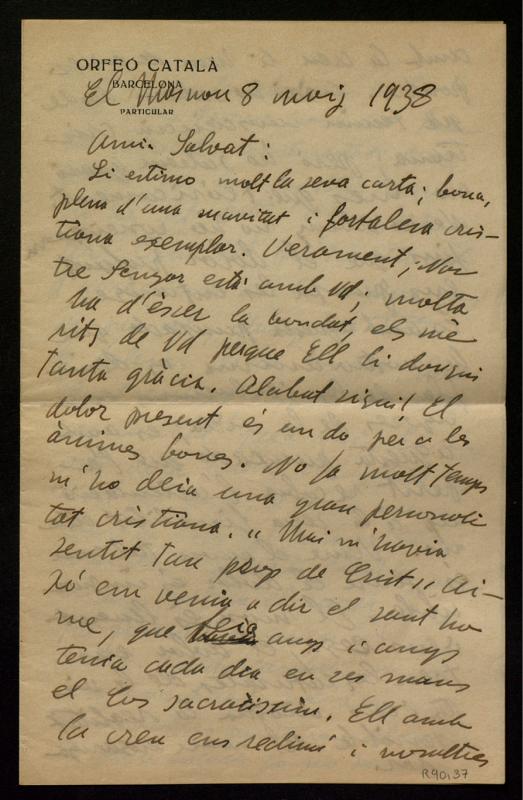 ORFEÓ CATALÀ
BARCELONA
PARTICULAR
El Masnou 8 maig 1938
Amic Salvat:
Li estimo molt la seva carta; bona,
plena d'una suavitat i fortalesa cris-
tiana exemplar. Verament, Nos-
tre Senyor està amb Vd; molta
ha d'ésser la bondat, els mè
rits de Vd perque Ell li dongui
tanta gràcia. Alabat sigui! El
dolor present és un do per a les
ànimes bones. No fa molt temps
m'ho deia una gran personali
tat cristiana. "Mai m'havia
sentit tan prop de Crist" Ai-
xó em venia a dir el sant ho
me, que feia anys i anys
tenia cada dia en ses mans
el Cos sacratíssim. Ell amb
la creu ens redimí i nosaltres
R90,37